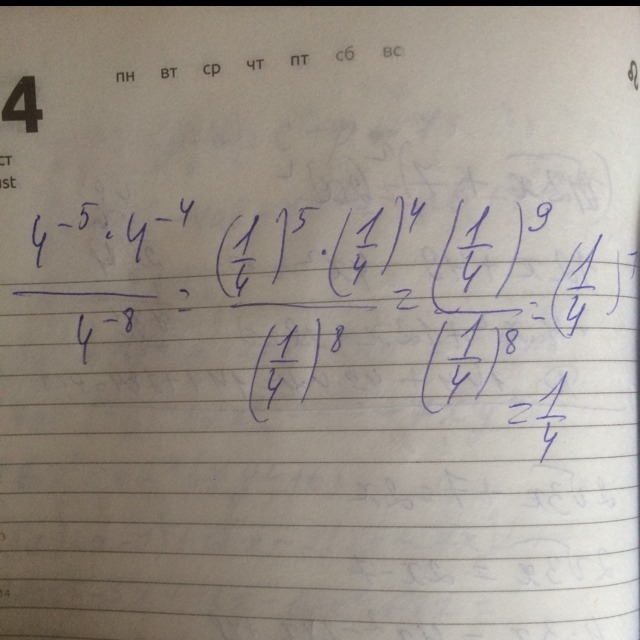 пн вт ср чт пт сб вс
4
ust
4^-5 · 4^-4 / 4^-8 = (1/4)^5 · (1/4)^4 / (1/4)^8 = (1/4)^9 / (1/4)^8 = (1/4)
= 1/4